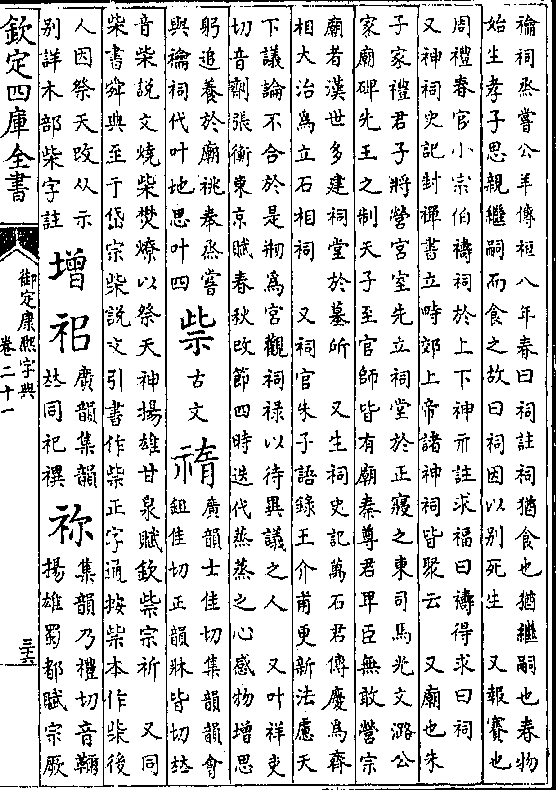 禴祠烝嘗公羊傳桓八年春曰祠註祠猶食也猶繼嗣也春物
始生孝子思親繼嗣而食之故曰祠因以别死生　又報賽也
周禮春官小宗伯禱祠於上下神示註求福曰禱得求曰祠
又神祠史記封禪書立畤郊上帝諸神祠皆聚云　又廟也朱
子家禮君子將營宮室先立祠堂於正寢之東司馬光文潞公
家廟碑先王之制天子至官師皆有廟秦尊君卑臣無敢營宗
廟者漢世多建祠堂於墓所　又生祠史記萬石君傳慶為齊
相大治為立石相祠　又祠官朱子語錄王介甫更新法慮天
下議論不合於是剏為宮觀祠祿以待異議之人　又叶祥吏
切音劑張衡東京賦春秋改節四時迭代蒸蒸之心感物增思
躬追養於廟祧奉烝嘗與禴祠代叶地思叶四
祡　古文𥚽　廣韻士佳切集韻韻會鉏佳切正韻牀皆切𠀤
音柴說文燒柴焚燎以祭天神揚雄甘泉賦欽祡宗祈　又同
柴書舜典至于岱宗柴說文引書作祡正字通按祡本作柴後
人因祭天改从示别詳木部柴字註
增𥘸　廣韻集韻𠀤同祀禩
祢　集韻乃禮切音鞴揚雄蜀都賦宗厥
欽定四庫全書
御定康熙字典
卷二十一
三十六